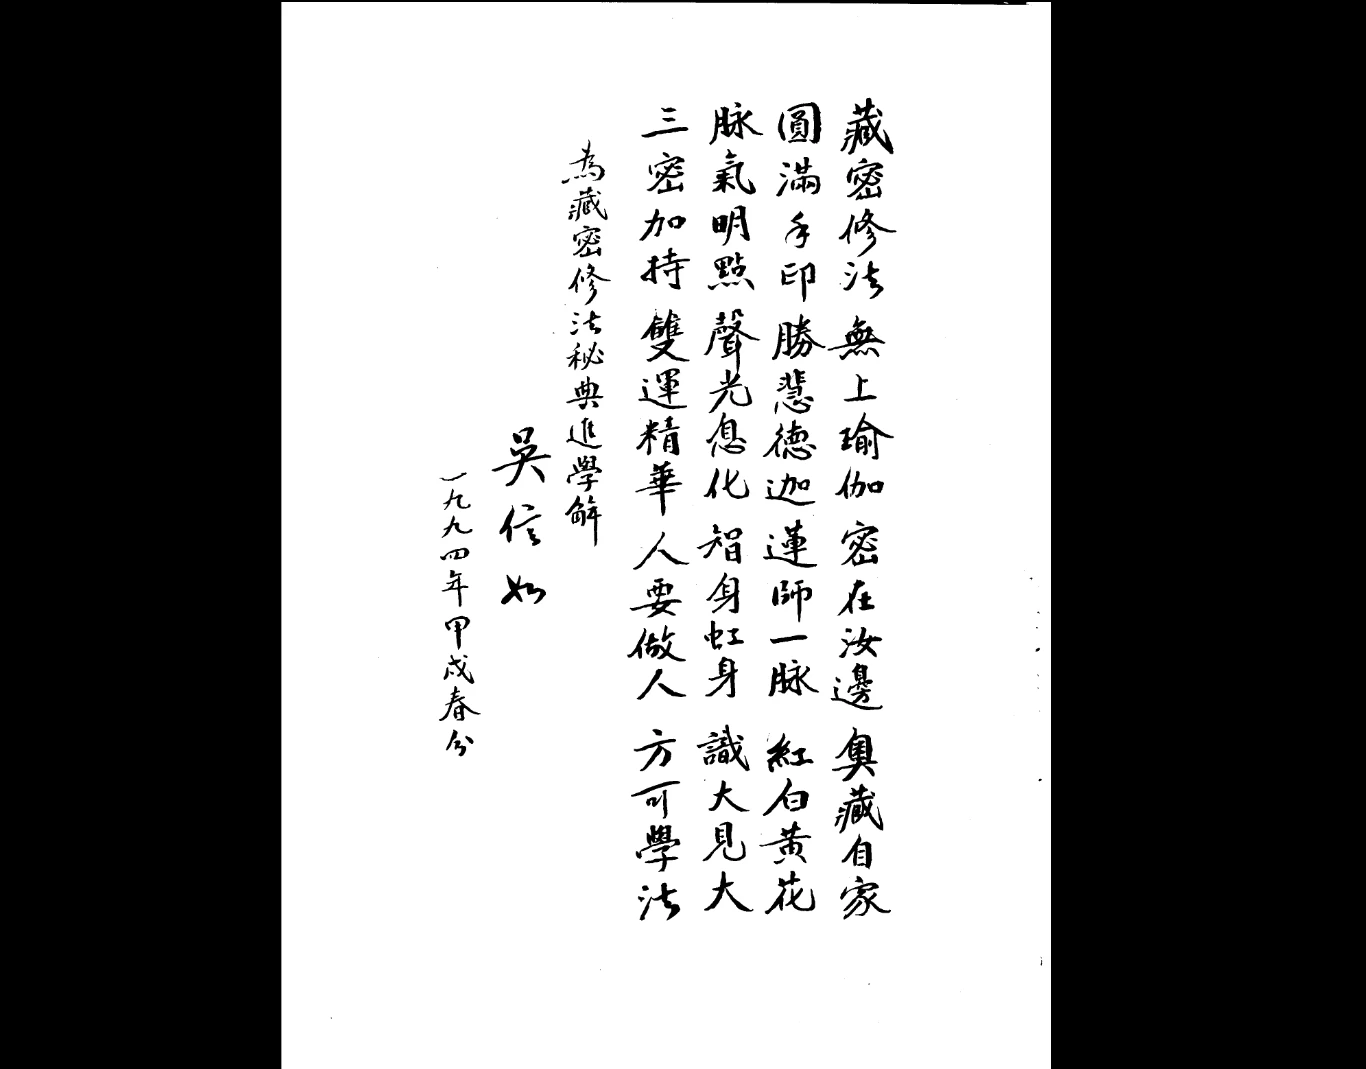 藏密修法 無上瑜伽 密在汝邊 奧藏自家
圓滿手印 勝慧德迦 蓮師一脉 紅白黃花
脉氣明點 聲光息化 智身虹身 識大見大
三密加持 雙運精華 人要做人 方可學法
為藏密修法秘典進學解
吳信如
一九九四年甲戌春分